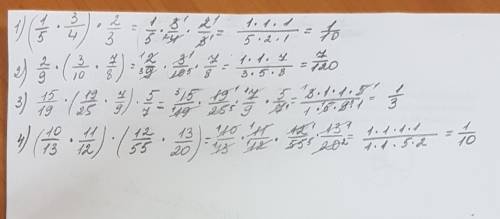 1) (1/5 · 3/4) · 2/3 = 1/5 · 3/4 · 2/3 = 1·1·1/5·2·1 = 1/10
2) 2/9 · (3/10 · 7/8) = 2/9 · 3/10 · 7/8 = 1·1·7/3·5·8 = 7/120
3) 15/19 · (19/25 · 7/9) · 5/7 = 15/19 · 19/25 · 7/9 · 5/7 = 3·1·1·5/1·5·9·1 = 1/3
4) (10/13 · 11/12) · (12/55 · 13/20) = 10/13 · 11/12 · 12/55 · 13/20 = 1·1·1·1/1·1·5·2 = 1/10